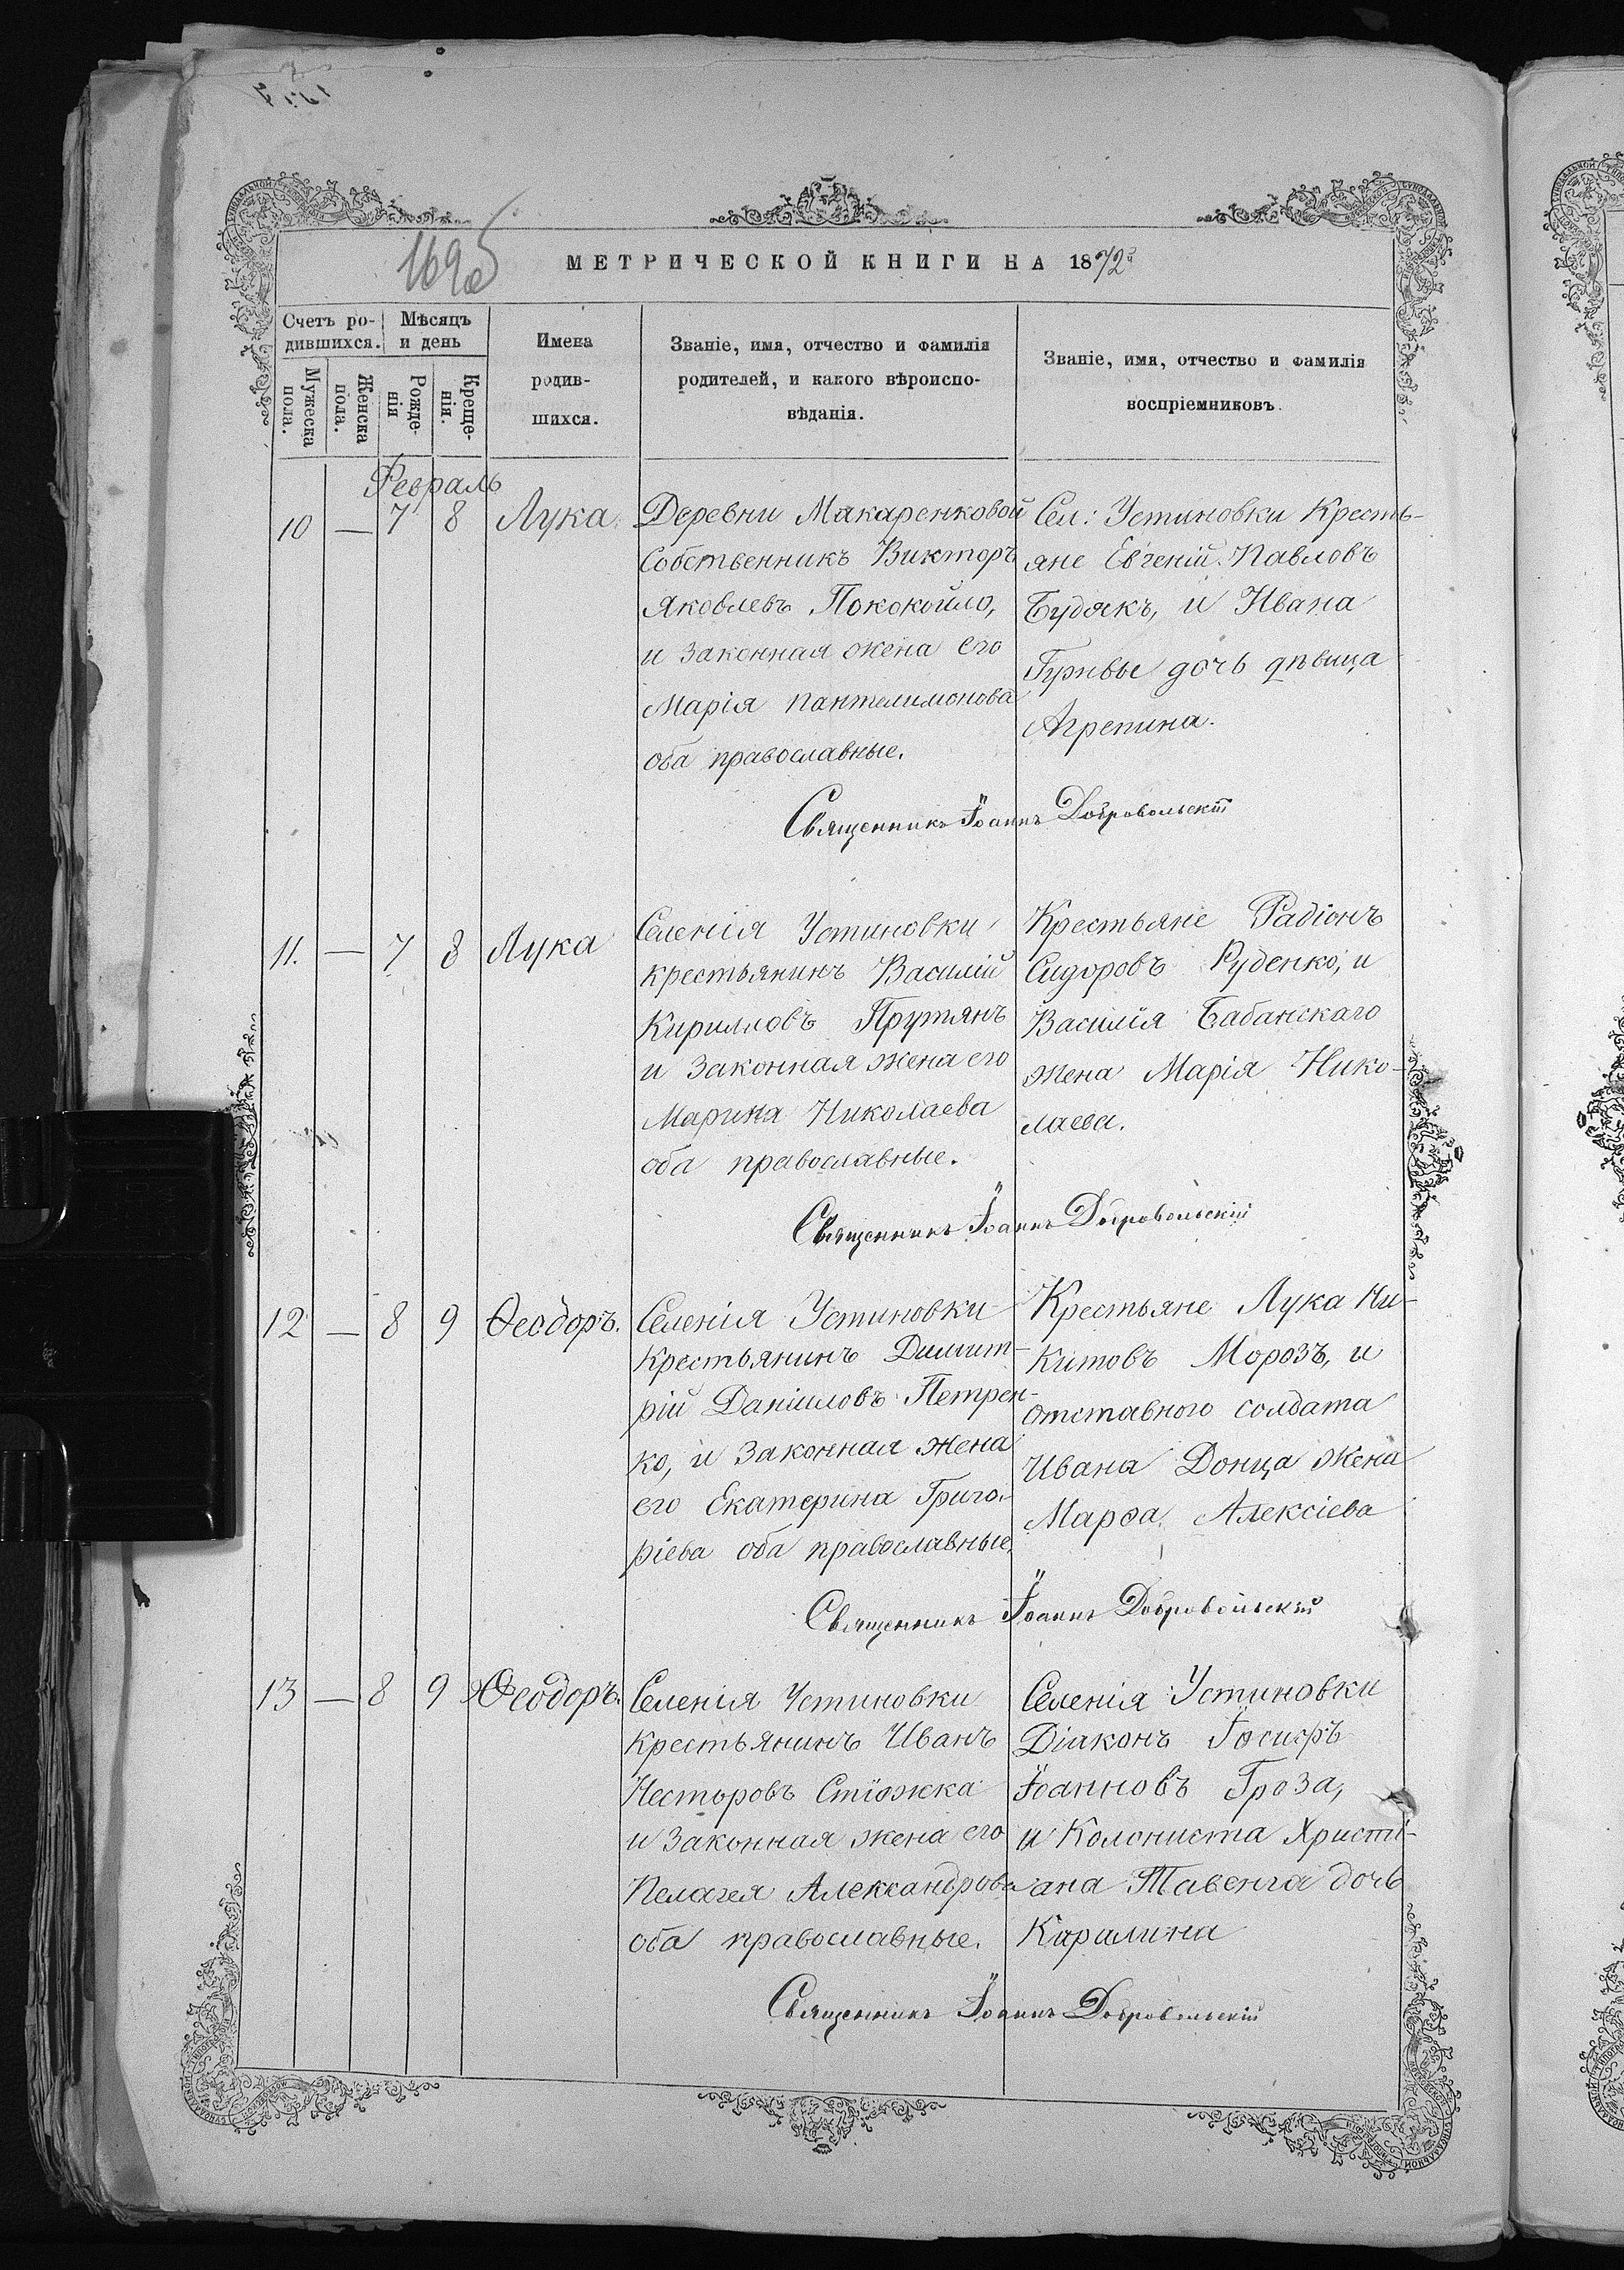 169 об
МЕТРИЧЕСКОЙ КНИГИ НА 1872
Счетъ ро-
дившихся.
Мѣсяцъ
и день
Мужеска
пола.
Женска
пола.
Рожде-
нія
Креще-
нія.
Имена
родив-
шихся.
Званіе, имя, отчество и фамилія
родителей, и какого вѣроиспо-
вѣданія.
Званіе, имя, отчество и фамилія
воспріемниковъ.
Февраль
10 — 7 8 Лука.
Деревни Макаренковой
Собственникъ Викторъ
Яковлевъ Пококойло,
и законная жена его
Марія Пантелимонова
оба православные.
Сел: Устиновки Кресть-
яне Евгеній Павловъ
Будякъ, и Ивана
Гривы дочь дѣвица
Агрепина.
Священникъ Іоаннъ Добровольскій
11. — 7 8 Лука
Селенія Устиновки
крестьянинъ Василій
Кирилловъ Прутянъ
и законная жена его
Марина Николаева
оба православные.
Крестьяне Радіонъ
Сидоровъ Руденко, и
Василія Бабанскаго
жена Марія Нико-
лаева.
Священникъ Іоаннъ Добровольскій
12 — 8 9 Ѳеодоръ.
Селенія Устиновки
Крестьянинъ Димит-
рій Даніиловъ Петрен-
ко, и законная жена
его Екатерина Григо-
ріева оба православные,
Крестьяне Лука Ни-
китовъ Морозъ, и
отставного солдата
Ивана Донца жена
Марѳа Алексіева
Священникъ Іоаннъ Добровольскій
13 — 8 9 Ѳеодоръ.
Селенія Устиновки
Крестьянинъ Иванъ
Несторовъ Стіожка
и законная жена его
Пелагея Александрова
оба православные.
Селенія Устиновки
Діаконъ Іосифъ
Іоанновъ Гроза,
и Колониста Христі-
ана Тавенга дочь
Каралина
Священникъ Іоаннъ Добровольскій